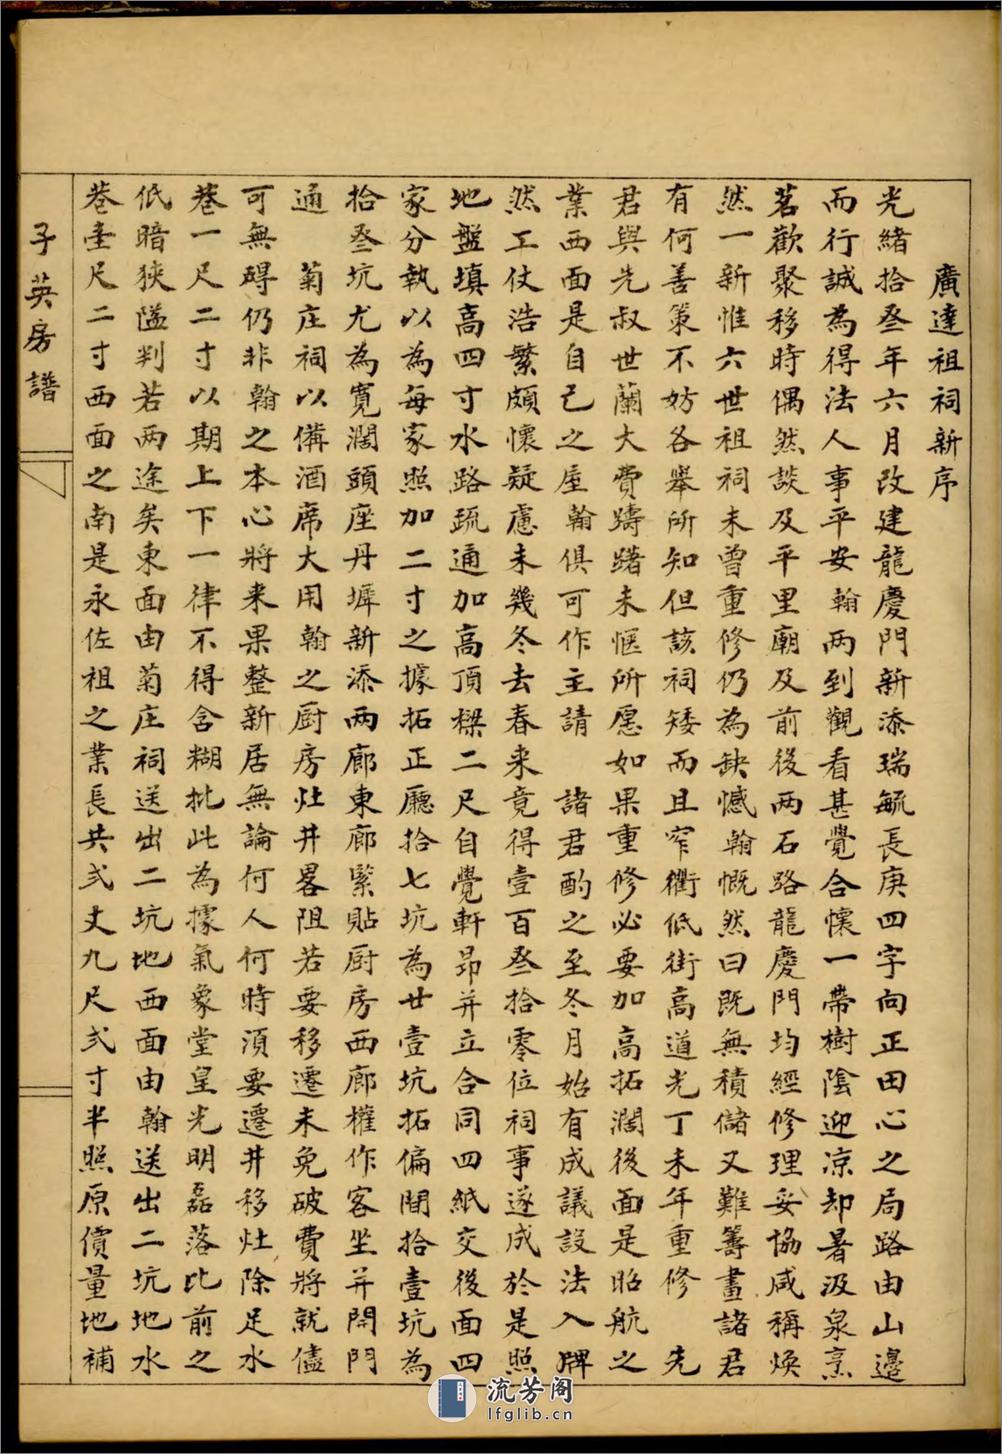 廣達祖祠新序
光緒拾叁年六月改建龍慶門新添瑞毓長庚四字向正田心之局路由山邊
而行誠為得法人事平安翰两到觀看甚覺合懷一帶樹陰迎凉却暑汲泉烹
茗歡聚移時偶然談及平里廟及前後两石路龍慶門均經修理妥協咸稱煥
然一新惟六世祖祠未曾重修仍為缺憾翰慨然曰既無積儲又難籌畫諸君
有何善策不妨各舉所知但該祠矮而且窄衢低街高道光丁未年重修　先
君與先叔世蘭大費躊躇未愜所愿如果重修必要加高拓濶後面是昭航之
業西面是自己之屋翰俱可作主請　諸君酌之至冬月始有成議設法入牌
然工仗浩繁頗懷疑慮未幾冬去春来竟得壹百叁拾零位祠事遂成於是照
地盤填高四寸水路疏通加高頂樑二尺自覺軒昂并立合同四紙交後面四
家分執以為每家照加二寸之據拓正廳拾七坑為廿壹坑拓偏間拾壹坑為
拾叁坑尤為寬濶頭座丹墀新添两廊東廊緊貼厨房西廊權作客坐并開門
通　菊庄祠以備酒席大用翰之厨房灶井畧阻若要移遷未免破費將就儘
可無碍仍非翰之本心將来果整新居無論何人何時湏要遷井移灶除足水
巷一尺二寸以期上下一律不得含糊批此為據氣象堂皇光明磊落比前之
低暗狹隘判若两途矣東面由菊庄祠送出二坑地西面由翰送出二坑地水
巷壹尺二寸西面之南是永佐祖之業長共弍丈九尺弍寸半照原價量地補
子英房譜
流芳阁
lfglib.cn